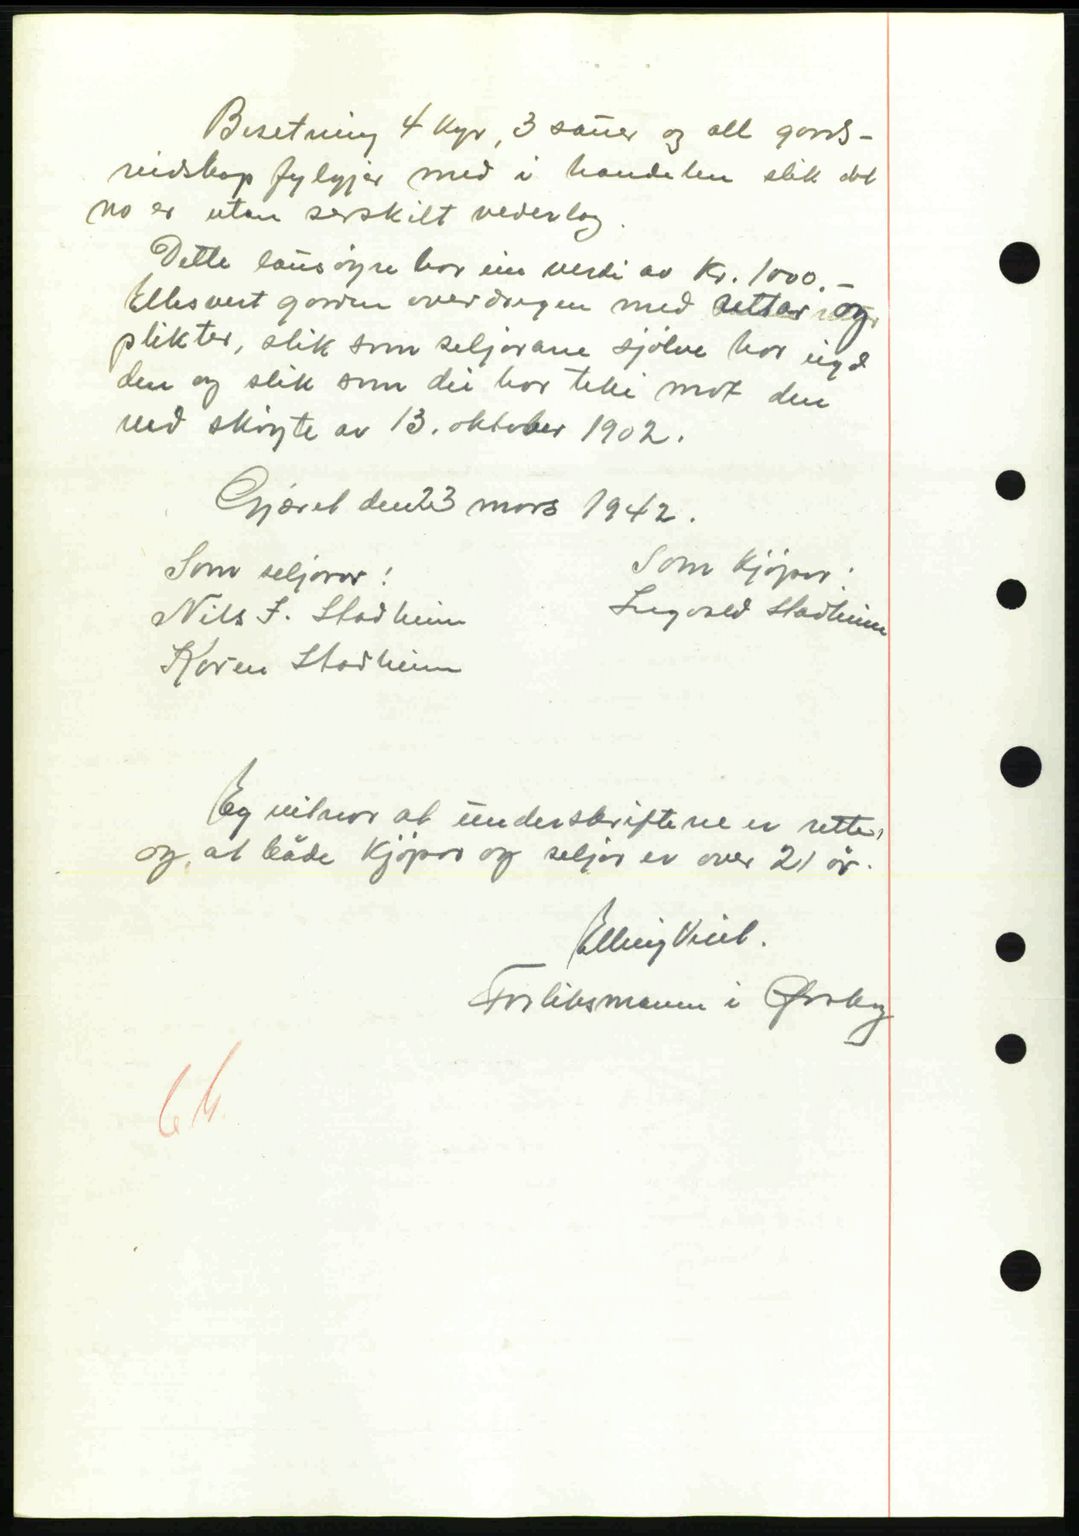 Besetning 4 kyr, 3 sauer og all gards-
reidskap fylgjer med i handelen slik det
no er utan serskilt vederlag.
Dette lausøyre har ein verdi av Kr. 1000.-
Elles vert garden overdregen med rettar og
plikter, slik som seljarane sjølve har eigd
den og slik som dei har teki mot den
ved skøyte av 13. oktober 1902.
den 23 mars 1942.
Som seljarar:
Som kjøpar:
Nils J. Stadheim
Ingvald Stadheim
Karen Stadheim
Eg vitnar at underskriftene er rette,
og at både kjøpar og seljar er over 21 år.
Elling
Forliksmann i Ørsta